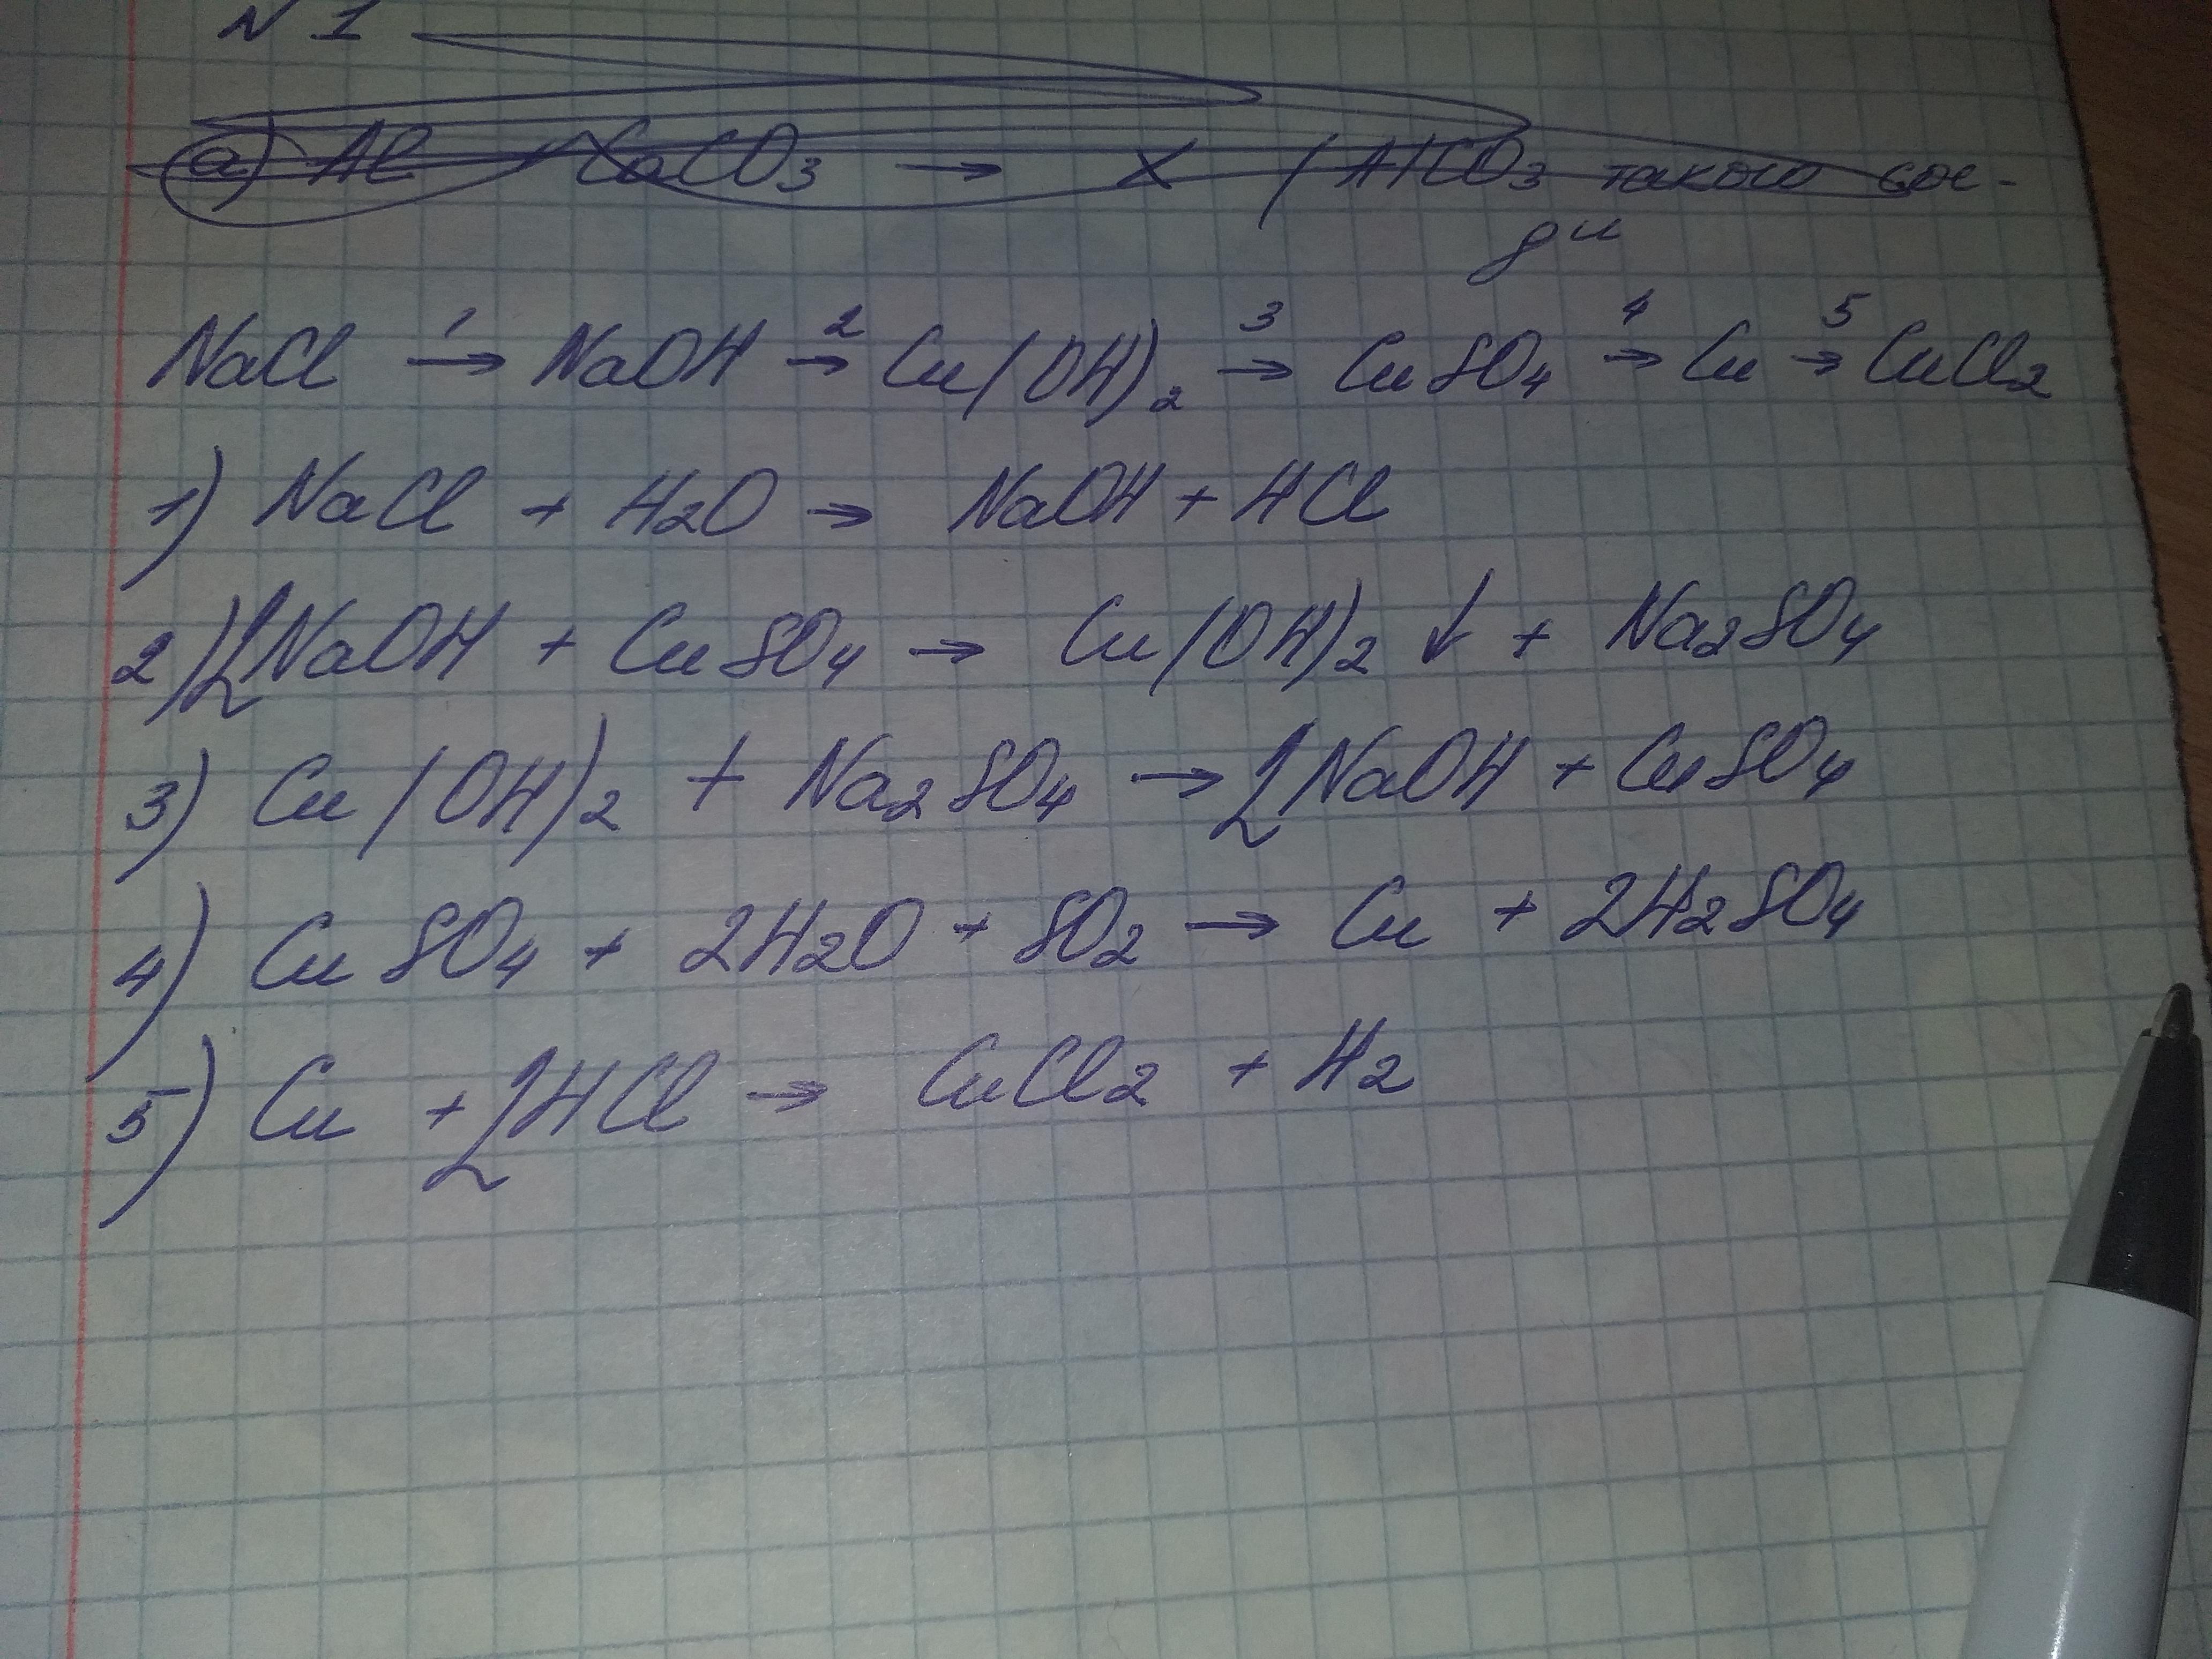 N 1
a) Al CaCO3 → X (AlCO3 такого сое-
ди
NaCl →1 NaOH →2 Cu(OH)2 →3 CuSO4 →4 Cu →5 CuCl2
1) NaCl + H2O → NaOH + HCl
2) 2NaOH + CuSO4 → Cu(OH)2 ↓ + Na2SO4
3) Cu(OH)2 + Na2SO4 → 2NaOH + CuSO4
4) CuSO4 + 2H2O + SO2 → Cu + 2H2SO4
5) Cu + 2HCl → CuCl2 + H2